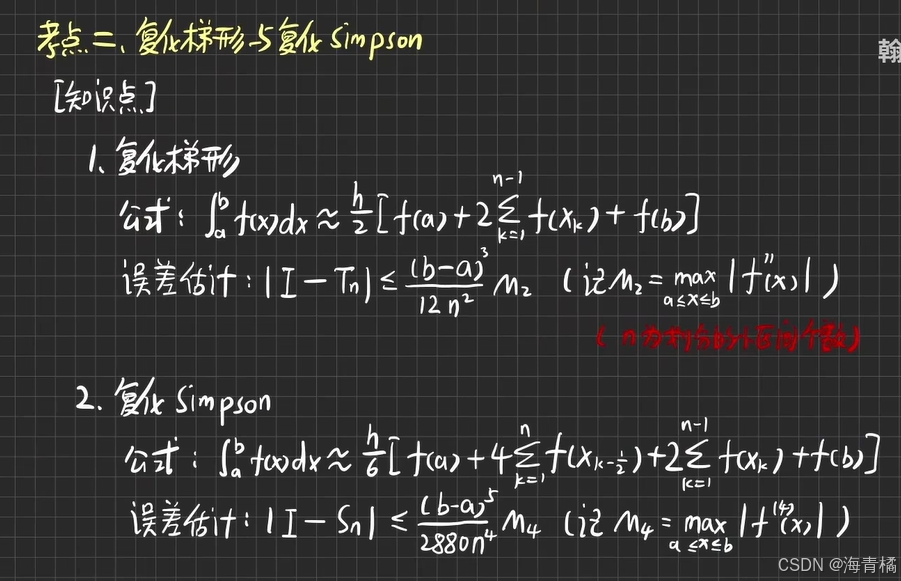 考点二、复化梯形与复化Simpson
翰
[知识点]
1、复化梯形
公式：∫_a^b f(x)dx ≈ h/2 [f(a) + 2∑_{k=1}^{n-1} f(x_k) + f(b)]
误差估计：|I - T_n| ≤ (b-a)^3/(12n^2) M_2 (记 M_2 = max_{a≤x≤b} |f''(x)|)
(n为划分的小区间个数)
2. 复化Simpson
公式：∫_a^b f(x)dx ≈ h/6 [f(a) + 4∑_{k=1}^{n} f(x_{k-1/2}) + 2∑_{k=1}^{n-1} f(x_k) + f(b)]
误差估计：|I - S_n| ≤ (b-a)^5/(2880n^4) M_4 (记 M_4 = max_{a≤x≤b} |f^{(4)}(x)|)
CSDN @海青橘